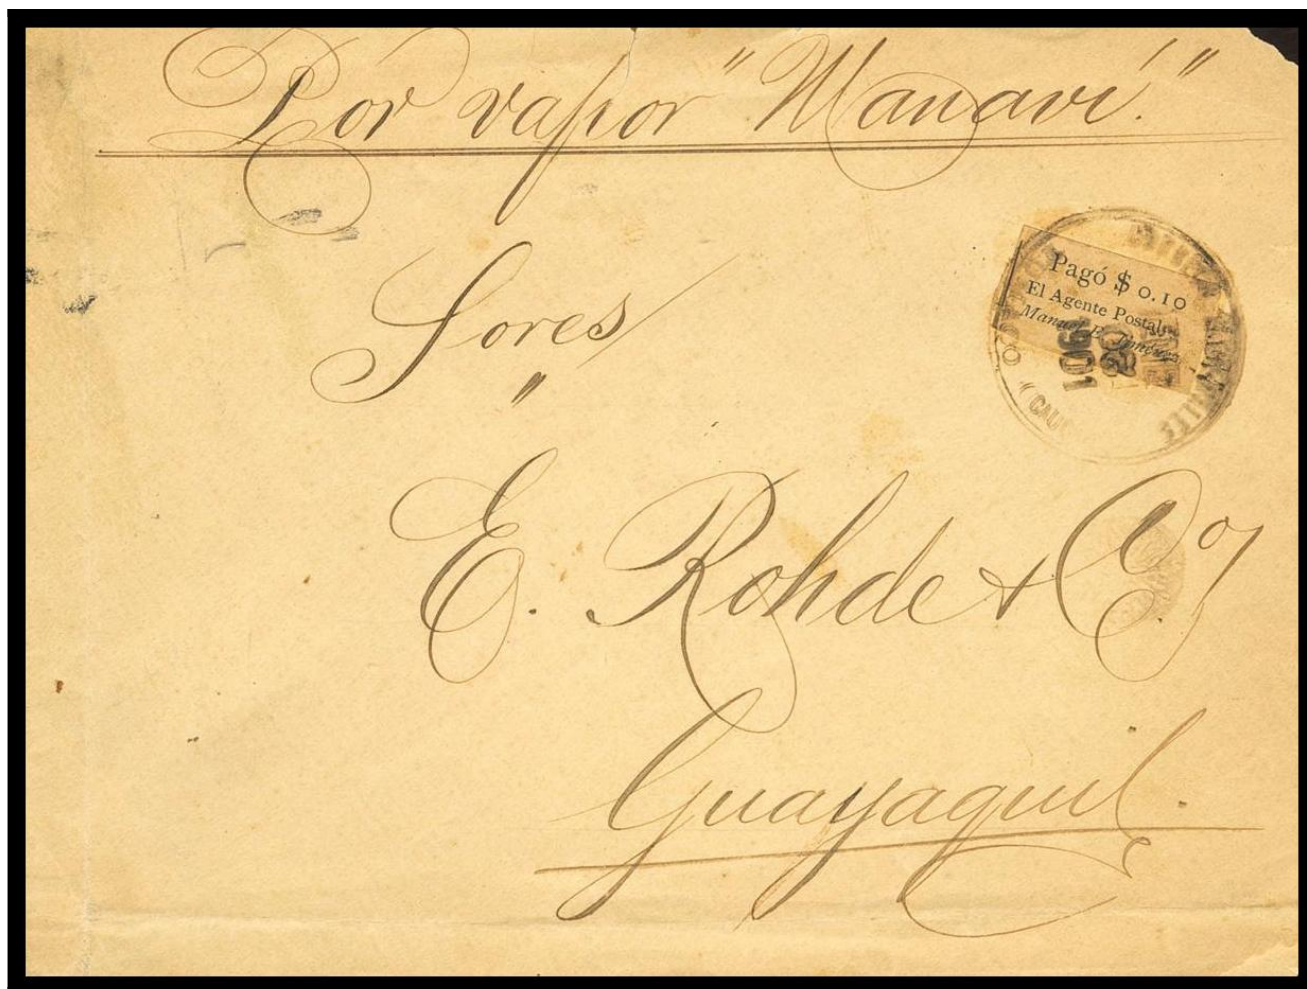 Por vapor "Manaví."
Sores
"
E. Rohde & Co/
Guayaquil.
Pagó $ 0.10
El Agente Postal
Manuel E. Jiménez
1901